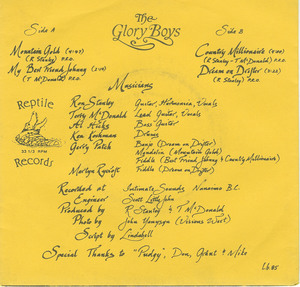 The
Glory Boys
Side A
Mountain Gold
(R Stanley) P.R.O.
My Best Friend Johnny
(T McDonald) P.R.O.
Side B
Country Millionaire
(R Stanley - T McDonald) P.R.O.
Dream on Drifter
(R Stanley) P.R.O.
Musicians
Ron Stanley Guitar, Harmonica, Vocals
Terry McDonald Lead Guitar, Vocals
Al Hicks Bass Guitar
Ken Drums
Gerry Banjo (Dream on Drifter)
Mandolin (Mountain Gold)
Fiddle (Best Friend Johnny & Country Millionaire)
Martyn Fiddle (Dream on Drifter)
Reptile
33 1/3 RPM
Records
Recorded at Intimate Sounds Nanaimo B.C.
Engineer Scott Littlejohn
Produced by R Stanley & T McDonald
Photo by John (Visions West)
Script by
Special Thanks to "Pudgy", Don, Grant & Mike